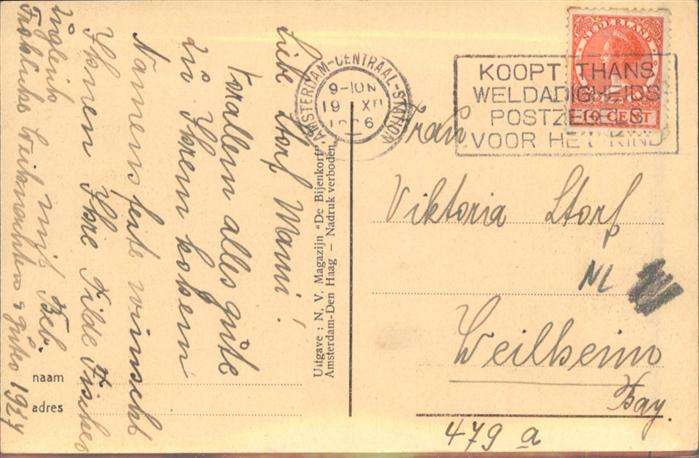 Liebe Storf Mami!
Vor allem alles gute
zu Ihrem hohem
Namensfeste wünscht
Ihnen Ihre Tilde Fischer
zugleich
Fröhliche Weihnachten u. gutes 1927
naam
adres
Uitgave: N. V. Magazijn "De Bijenkorf"
Amsterdam-Den Haag — Nadruk verboden
AMSTERDAM-CENTRAAL-STATION
19 XII
NEDERLAND
10 CENT
KOOPT THANS
WELDADIGHEIDS
POSTZEGELS
VOOR HET KIND
Frau
Viktoria Storf
NL
Weilheim
Bay.
479 a